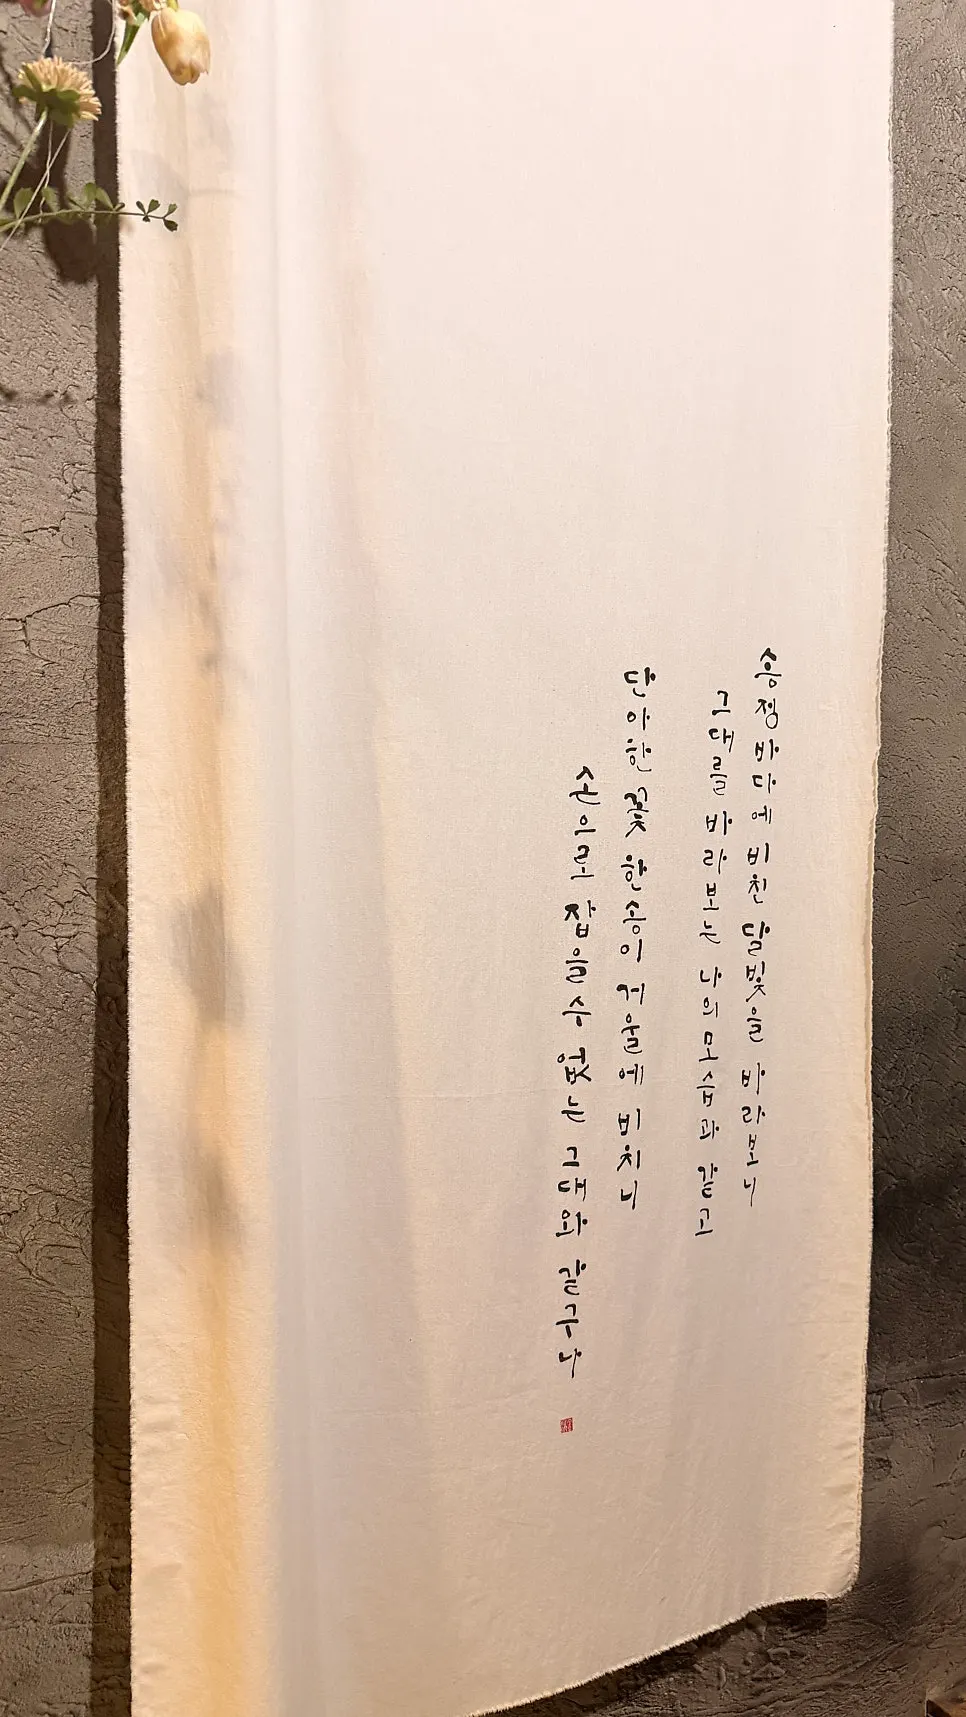 송정 바다에 비친 달빛을 바라보니
그대를 바라보는 나의 모습과 같고
단아한 꽃 한송이 겨울에 비치니
손으로 잡을 수 없는 그대와 같구나